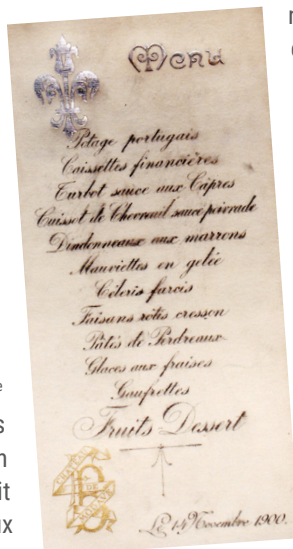 Menu
Potage portugais
Caissettes financières
Turbot sauce aux Câpres
Cuissot de Chevreuil sauce poivrade
Dindonneaux aux marrons
Mauviettes en gelée
Céleris farcis
Faisans rôtis cresson
Pâtés de Perdreaux
Glaces aux fraises
Gaufrettes
Fruits Dessert
Le 14 Novembre 1900.
e
s
n
it
ux